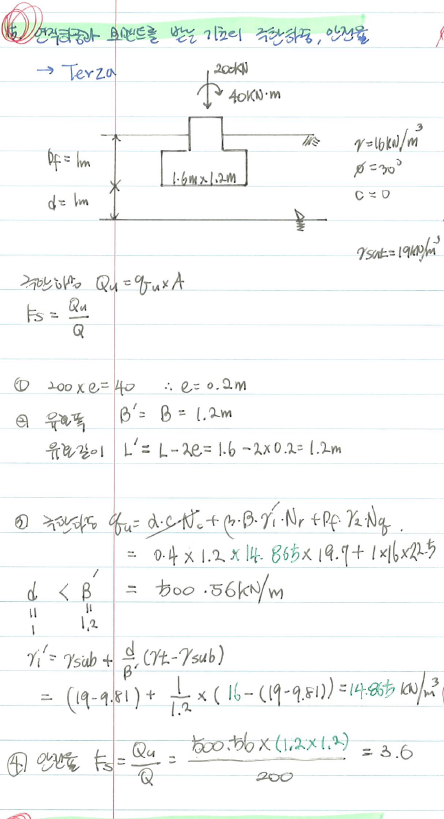 5. 연직하중과 모멘트를 받는 기초의 극한하중, 안전율
→ Terza
200kN
40KN·m
Df = 1m
d = 1m
1.6m×1.2m
γ=16kN/m³
ø=30°
C=0
γsat=19kN/m³
극한하중 Qu = qu×A
Fs = Qu/Q
① 200×e=40 ∴ e=0.2m
② 유효폭 B' = B = 1.2m
유효길이 L' = L-2e = 1.6-2×0.2 = 1.2m
③ 극한하중 qu = α·C·Nc + β·B·γ1'·Nr + Df·γ2·Nq.
= 0.4×1.2×14.865×19.7+1×16×22.5
d < B' = 500.56kN/m
" "
1 1.2
γ1' = γsub + d/B' (γt-γsub)
= (19-9.81) + 1/1.2 × (16-(19-9.81)) = 14.865 kN/m³
④ 안전율 Fs = Qu/Q = 500.56×(1.2×1.2)/200 = 3.6